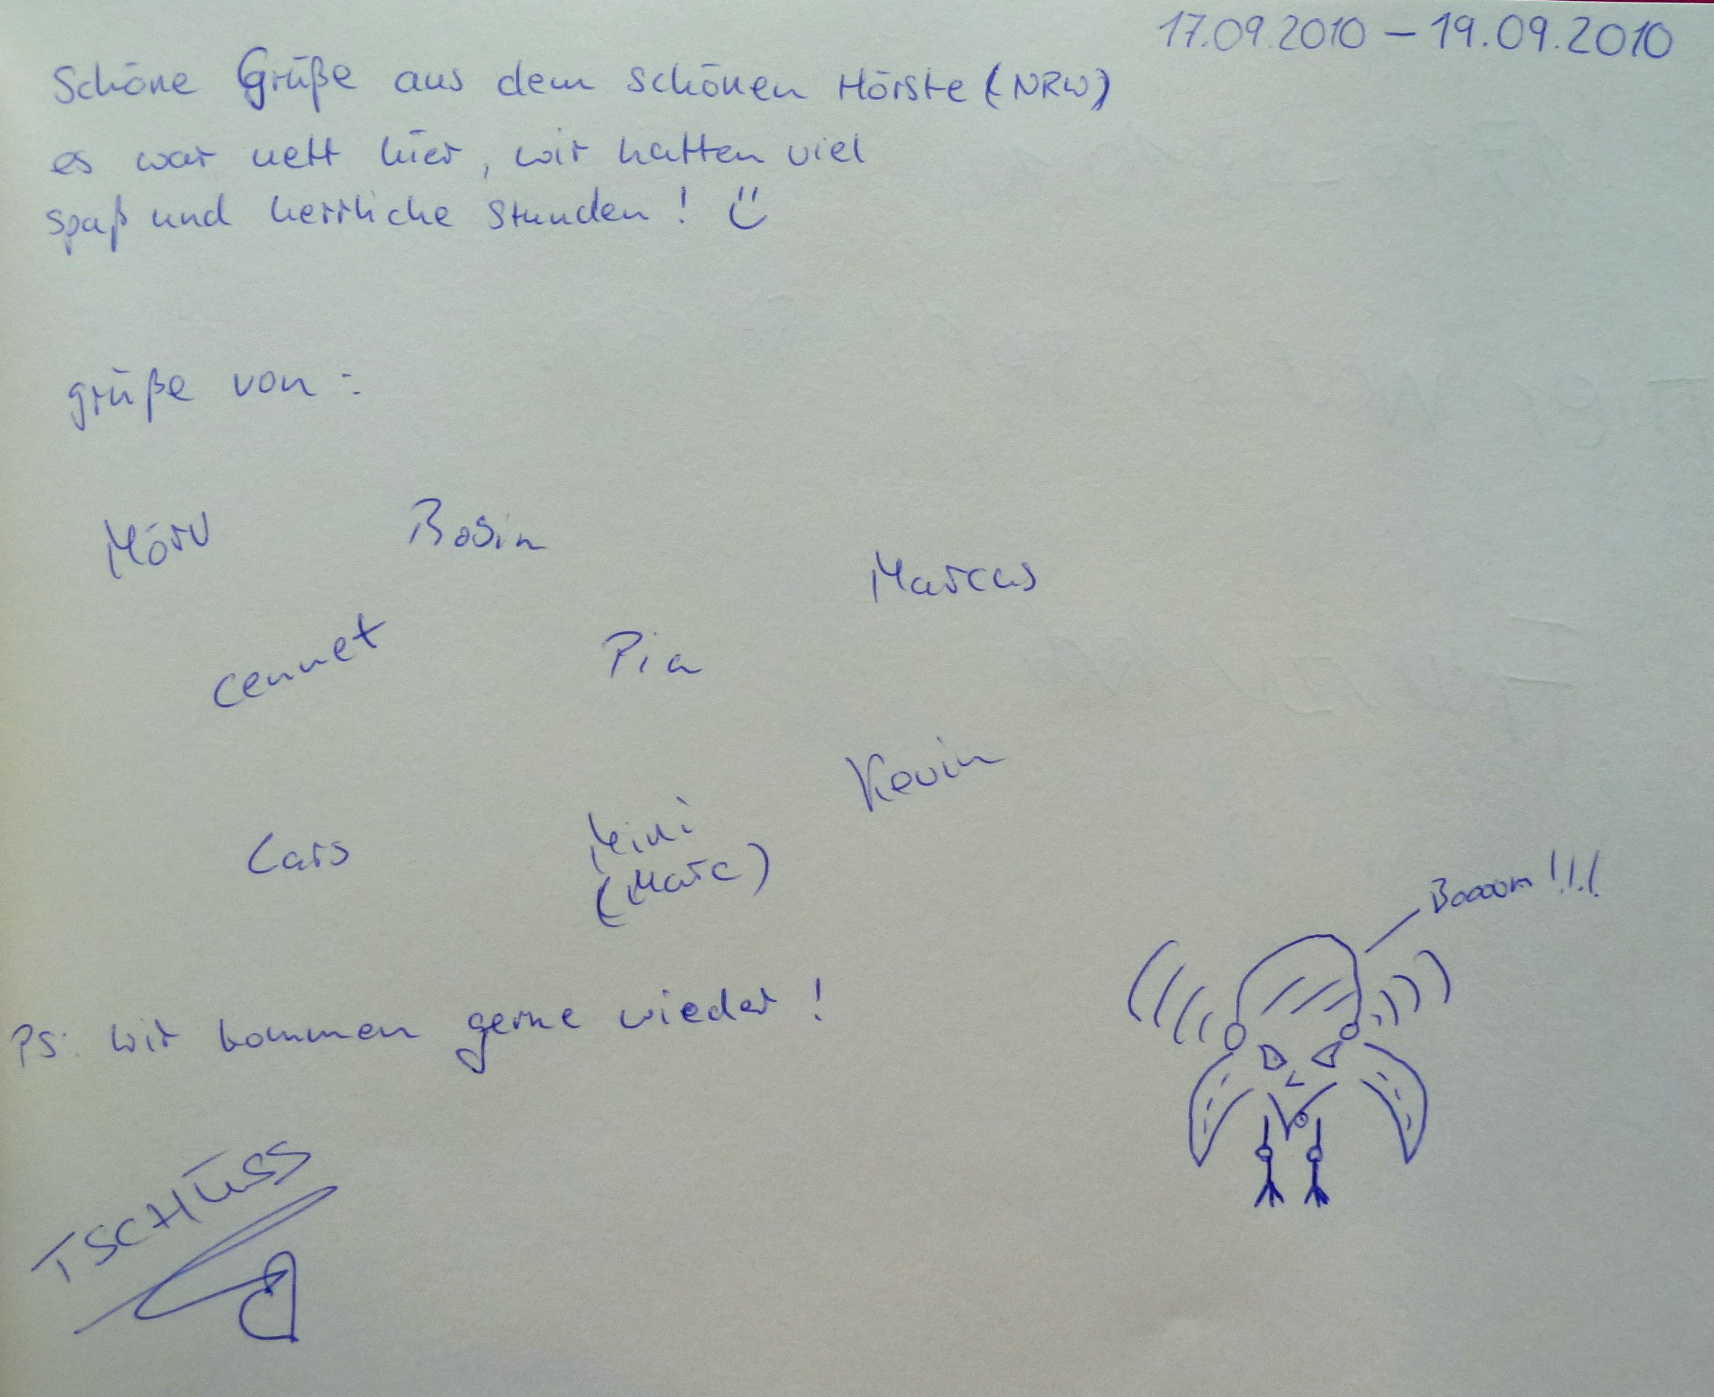 17.09.2010 – 19.09.2010
Schöne Grüße aus dem schönen Hörste (NRW)
es war nett hier, wir hatten viel
spaß und herrliche Stunden! Ü
grüße von:
Mörv
Marcus
cennet
Pia
Kevin
Lars
Mini
(Marc)
Booom!!!
PS: wir kommen gerne wieder!
TSCHÜSS